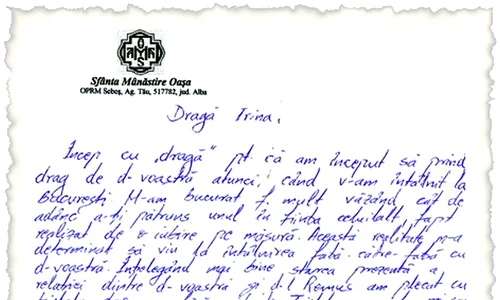 Sfânta Mânăstire Oaşa
OPRM Sebeş, Ag. Tău, 517782, jud. Alba
Dragă Irina,
Încep cu „dragă" pt. că am început să prind
drag de d-voastră atunci, când v-am întâlnit la
Bucureşti. M-am bucurat f. mult văzând, cât de
adânc a-ţi pătruns unul în fiinţa celuilalt, fapt
realizat de o iubire pe măsură. Această realitate m-a
determinat să viu la întâlnirea faţă către faţă cu
d-voastră. Înţelegând mai bine starea prezentă a
relaţiei dintre d-voastră şi d-l Remus am plecat cu